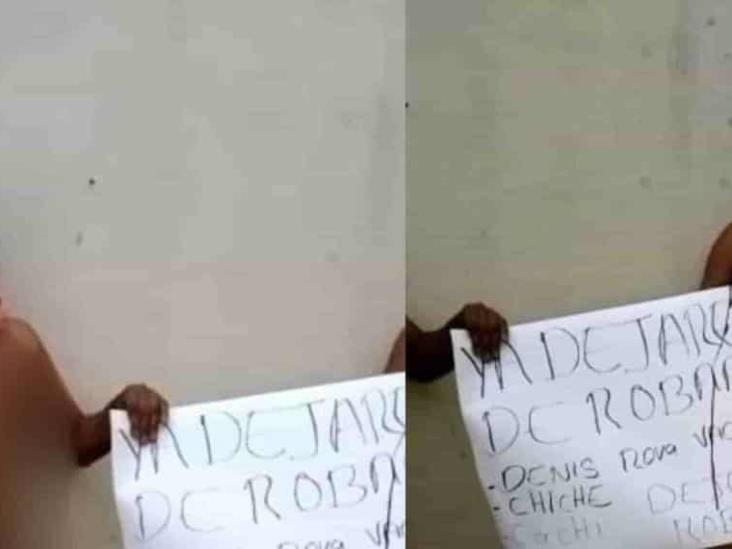 YA DEJAR
DE ROBA
ROVA
YA DEJAR
DE ROBA
-DENIS ROVA
-CHICHE DEJ
-CACHI ROB